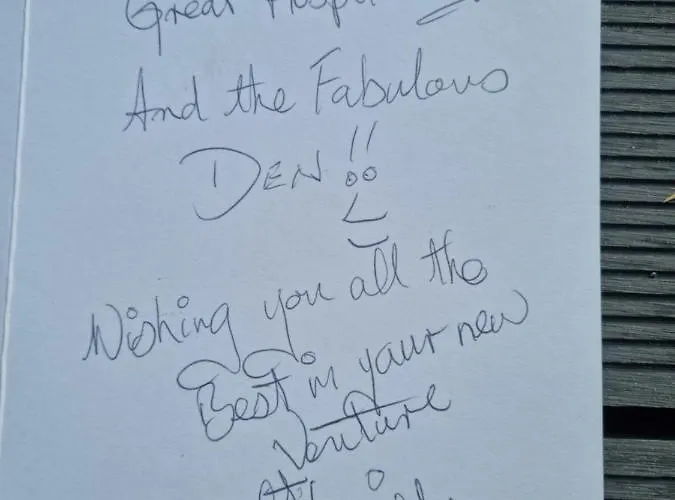 Great
And the Fabulous
DEN!!
Wishing you all the
Best in your new
Venture